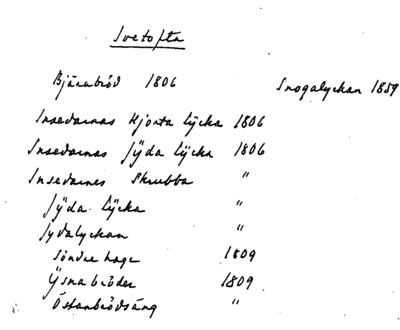 Svetofta
Bjärabröd 1806 Snogalyckan 1859
Insedarnas Hjorta Lÿcka 1806
Insedarnas Jÿda Lÿcka 1806
Insedarnes Skrubba "
Jÿda Lÿcka "
Jydalyckan "
Söndre hage 1809
Ÿsna bröder 1809
Östanbrödsäng "